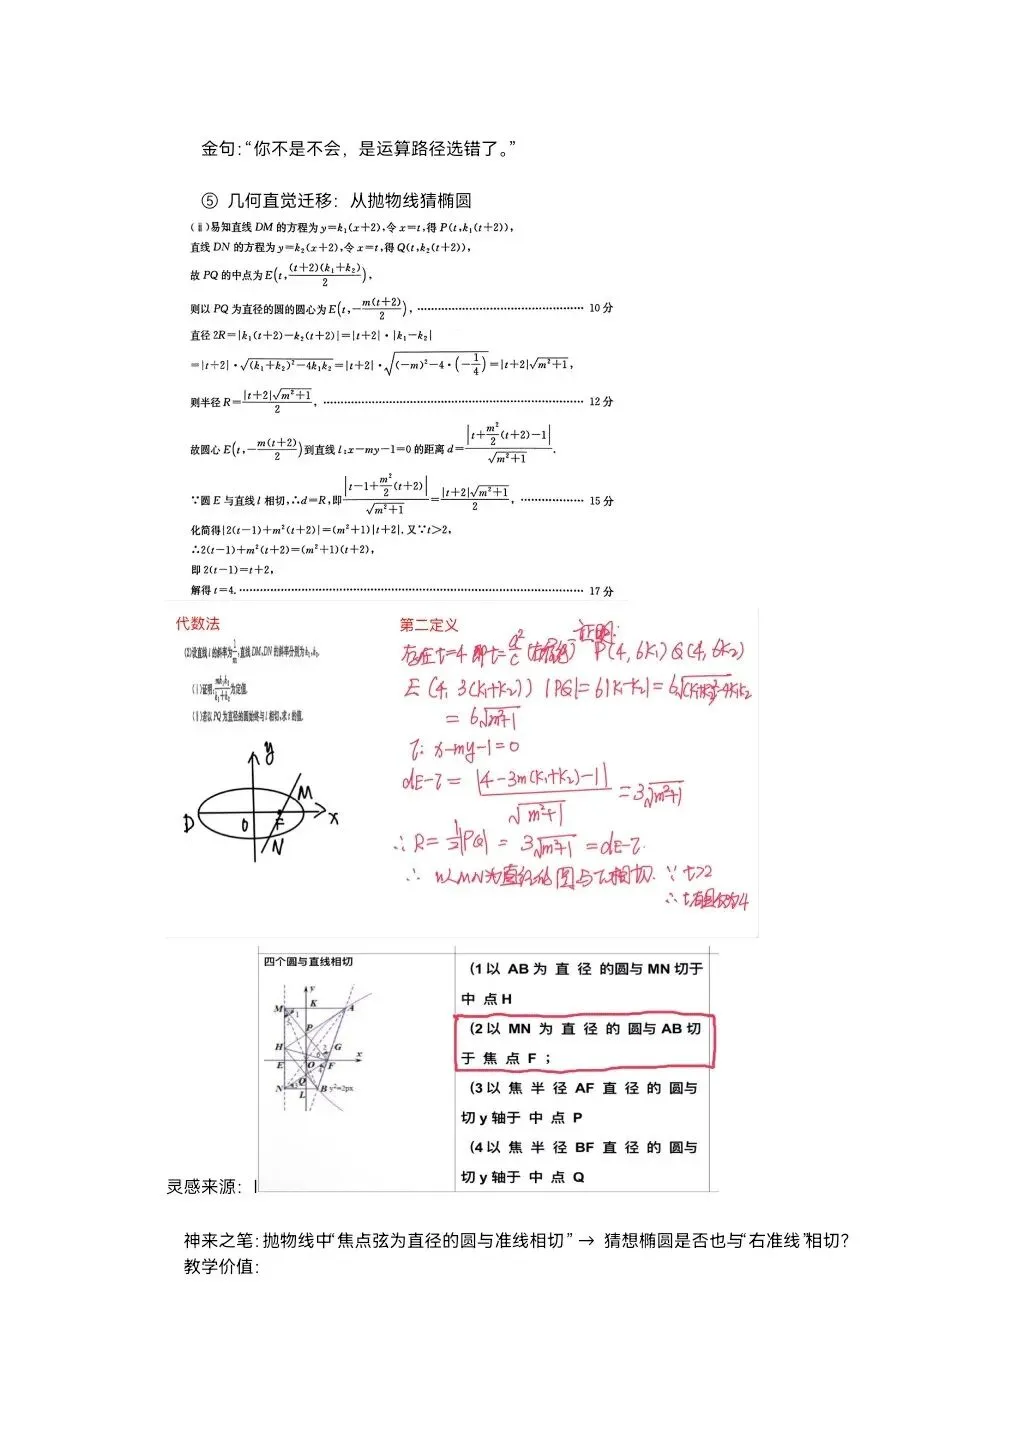 金句：“你不是不会，是运算路径选错了。”
⑤ 几何直觉迁移：从抛物线猜椭圆
(ⅱ)易知直线 DM 的方程为 y=k₁(x+2),令 x=t,得 P(t,k₁(t+2)),
直线 DN 的方程为 y=k₂(x+2),令 x=t,得 Q(t,k₂(t+2)),
故 PQ 的中点为 E(t,(t+2)(k₁+k₂)/2),
则以 PQ 为直径的圆的圆心为 E(t,-m(t+2)/2), ………… 10 分
直径 2R=|k₁(t+2)-k₂(t+2)|=|t+2|·|k₁-k₂|
=|t+2|·√((k₁+k₂)²-4k₁k₂)=|t+2|·√((-m)²-4·(-1/4))=|t+2|√(m²+1),
则半径 R=|t+2|√(m²+1)/2, ………… 12 分
故圆心 E(t,-m(t+2)/2)到直线 l:x-my-1=0 的距离 d=|t+m²/2(t+2)-1|/√(m²+1).
∵圆 E 与直线 l 相切,∴d=R,即|t-1+m²/2(t+2)|/√(m²+1)=|t+2|√(m²+1)/2, ………… 15 分
化简得|2(t-1)+m²(t+2)|=(m²+1)|t+2|.又∵t>2,
∴2(t-1)+m²(t+2)=(m²+1)(t+2),
即 2(t-1)=t+2,
解得 t=4. ………… 17 分
代数法
(2)设直线 l 的斜率为1/m,直线 DM,DN 的斜率分别为 k₁,k₂.
(ⅰ)证明:mk₁k₂/(k₁+k₂)为定值.
(ⅱ)若以 PQ 为直径的圆始终与 l 相切,求 t 的值.
y
D
O
F
M
N
x
第二定义
证明:
存在t=4 即t=a²/c P(4, 6k₁) Q(4, 6k₂)
E (4, 3(k₁+k₂)) |PQ|=6|k₁-k₂|=6√((k₁+k₂)²-4k₁k₂)
=6√(m²+1)
l: x-my-1=0
dE-l = |4-3m(k₁+k₂)-1|/√(m²+1) =3√(m²+1)
∴R=1/2|PQ| = 3√(m²+1) =dE-l.
∴ 以MN为直径的圆与l相切. ∵ t>2
四个圆与直线相切
y
M
K
A
1
P
H
G
E
O
F
x
Q
N
B
y²=2px
L
(1 以 AB 为 直 径 的圆与 MN 切于
中 点 H
(2 以 MN 为 直 径 的 圆与 AB 切
于 焦 点 F ；
(3 以 焦 半 径 AF 直 径 的 圆与
切 y 轴于 中 点 P
(4 以 焦 半 径 BF 直 径 的 圆与
切 y 轴于 中 点 Q
灵感来源：
神来之笔：抛物线中“焦点弦为直径的圆与准线相切” → 猜想椭圆是否也与“右准线”相切？
教学价值：